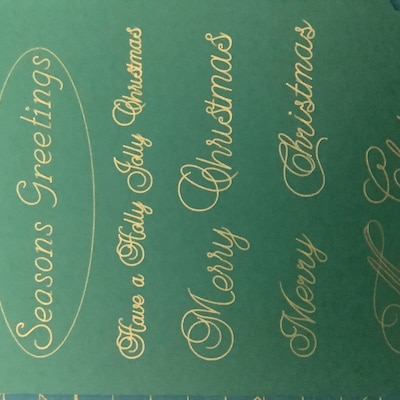 Seasons Greetings
Have a Holly Jolly Christmas
Merry Christmas
Merry Christmas